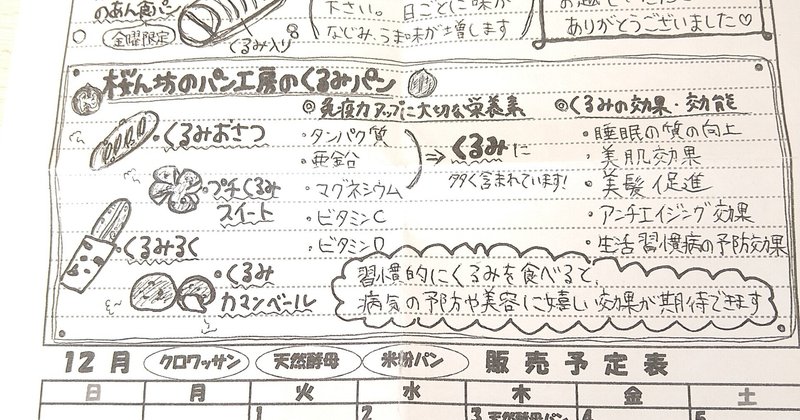 のあん食パン
金曜限定
くるみ入り
下さい。 日ごとに味が
なじみ、うま味が増します
ありがとうございました♡
桜ん坊のパン工房のくるみパン
・くるみおさつ
・プチくるみ
スイート
・くるみるく
・くるみ
カマンベール
◎免疫力アップに大切な栄養素
・タンパク質
・亜鉛
・マグネシウム
・ビタミンC
・ビタミンD
⇒くるみに
多く含まれています!
◎くるみの効果・効能
・睡眠の質の向上
・美肌効果
・美髪促進
・アンチエイジング効果
・生活習慣病の予防効果
習慣的にくるみを食べると、
病気の予防や美容に嬉しい効果が期待できます
12月 クロワッサン 天然酵母 米粉パン 販売予定表
日 月 火 水 木 金 土
1 2 3 天然酵母パン 4 5